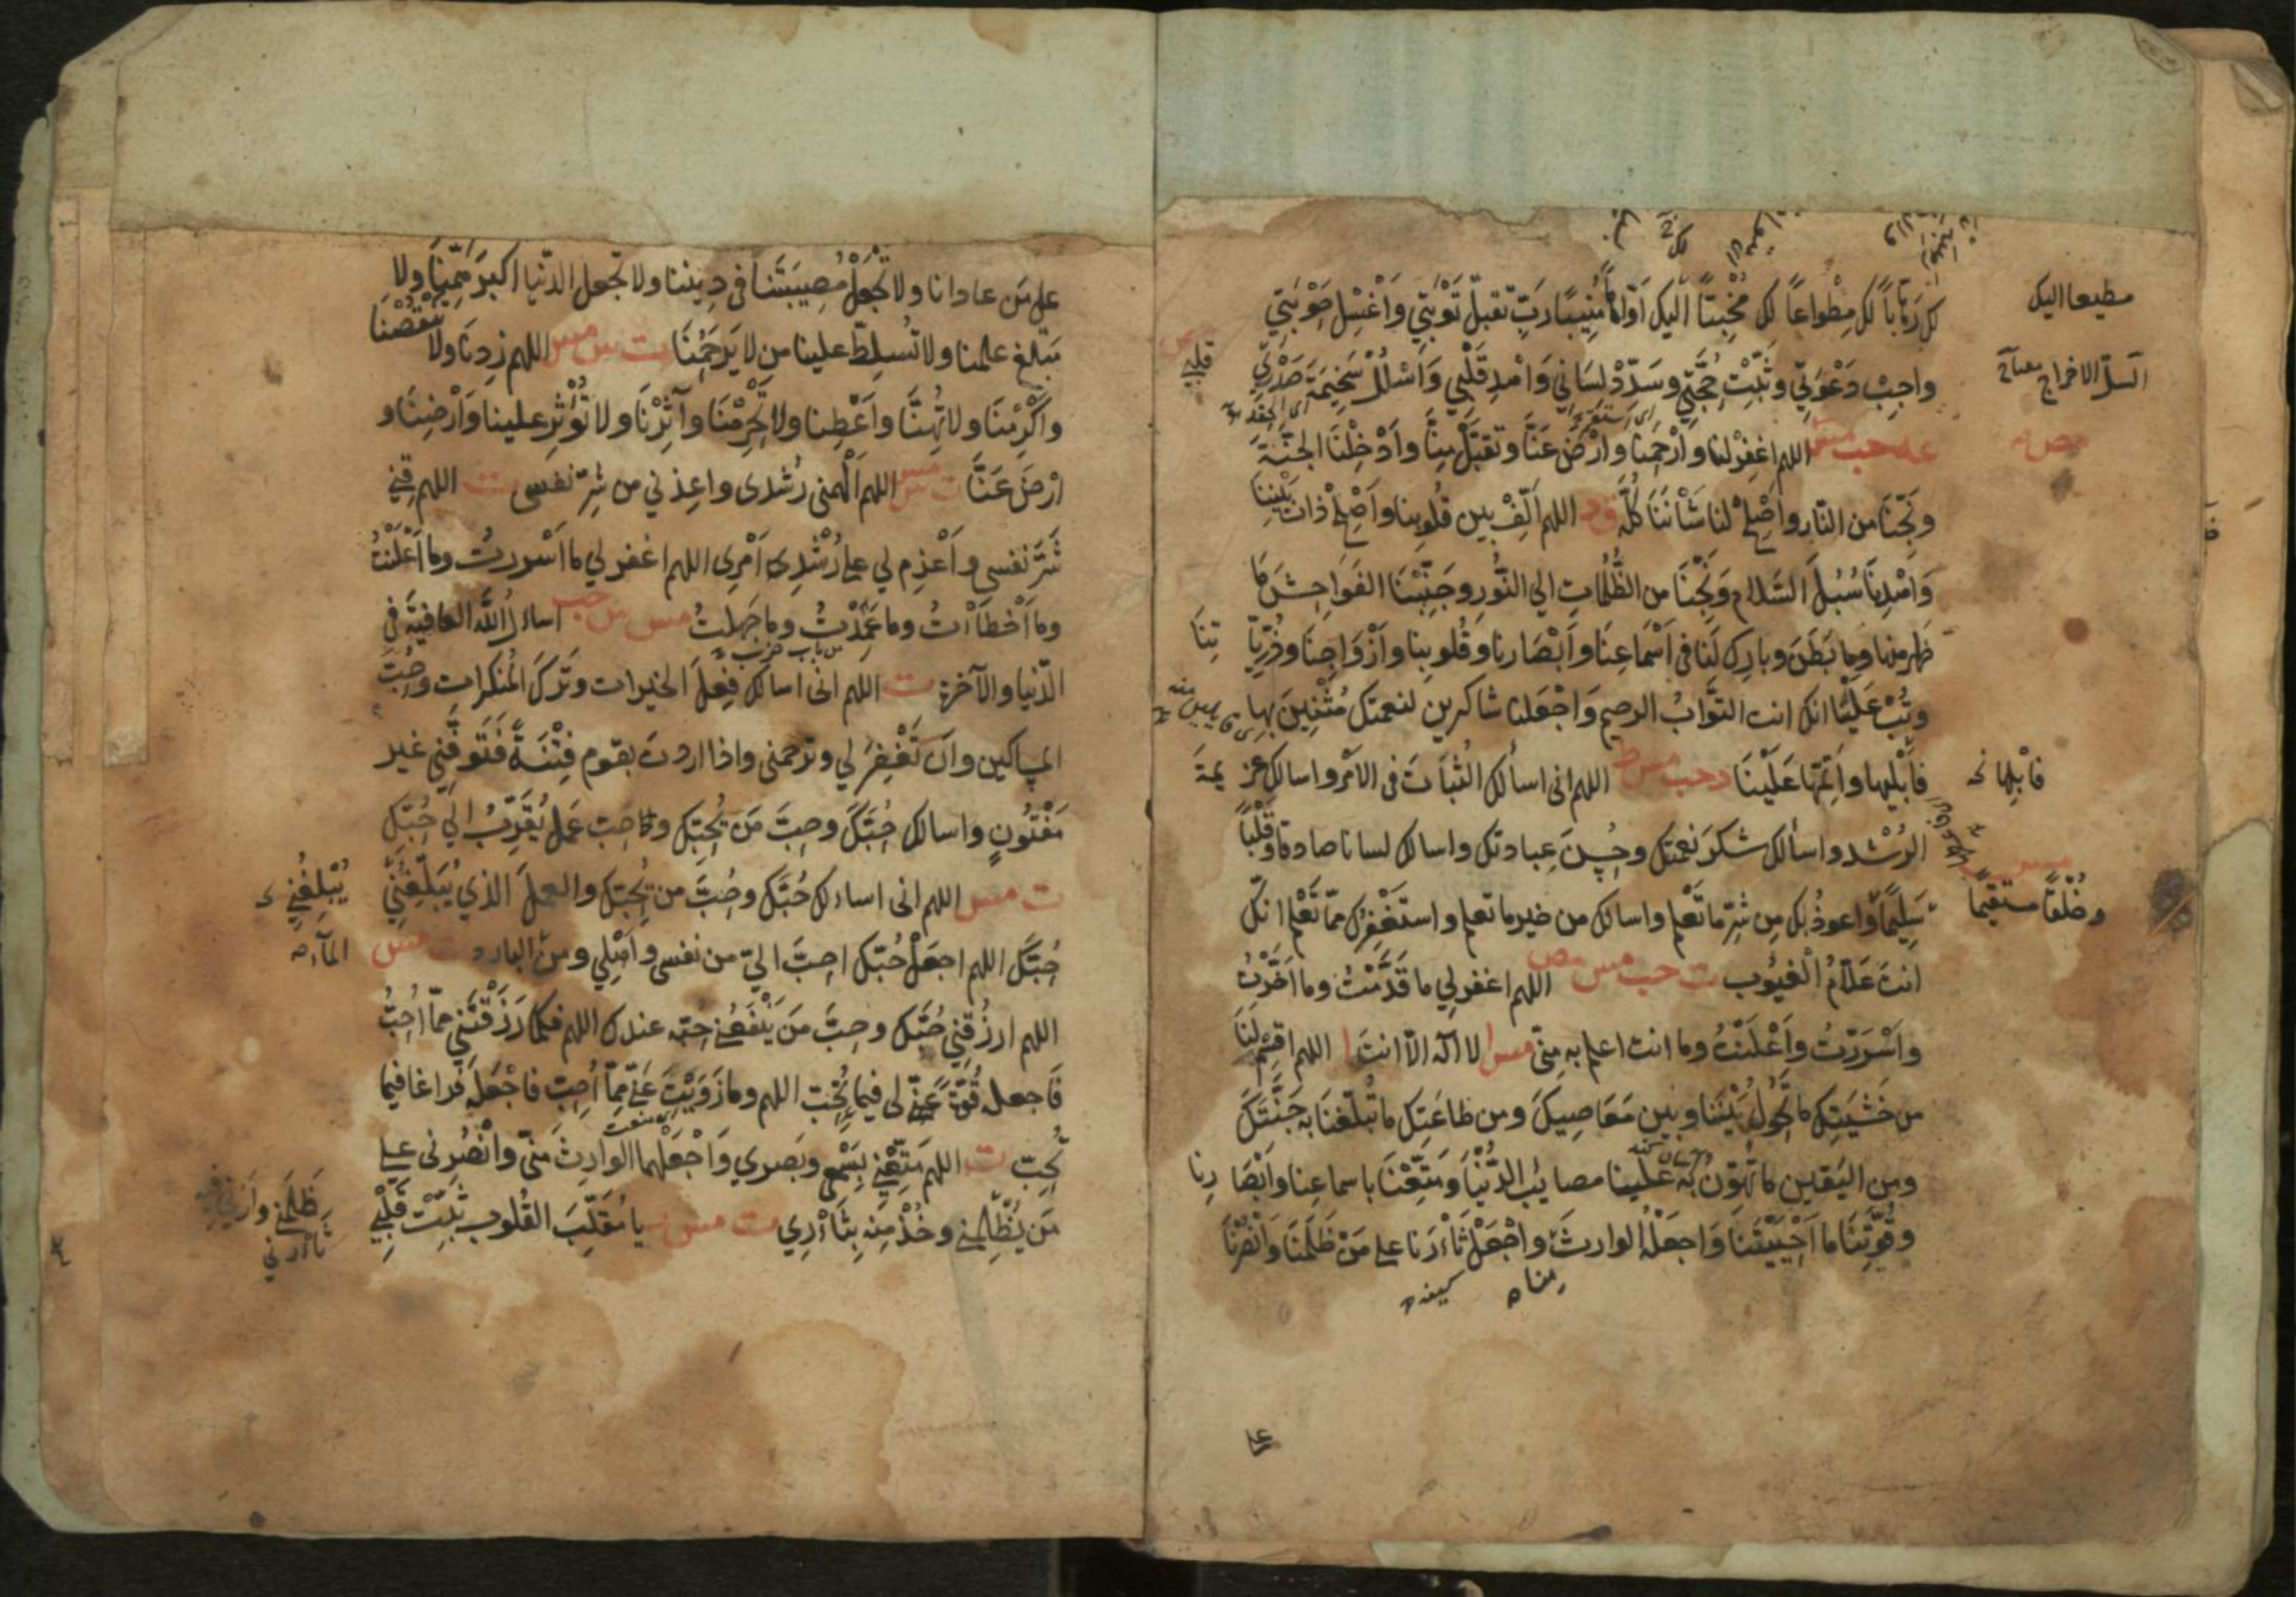 لك رهابا لك مطواعا لك مخبتا اليك اواها منيبا رب تقبل توبتي واغسل حوبتي
واجب دعوتي وثبت حجتي وسدد لساني واهد قلبي واسلل سخيمة صدري
عه حب مس اللهم اغفر لنا وارحمنا وارض عنا وتقبل منا وادخلنا الجنة
ونجنا من النار واصلح لنا شاننا كله ق د اللهم الف بين قلوبنا واصلح ذات بيننا
واهدنا سبل السلام ونجنا من الظلمات الي النور وجنبنا الفواحش ما
ظهر منها وما بطن وبارك لنا في اسماعنا وابصارنا وقلوبنا وازواجنا وذريا تنا
وتب علينا انك انت التواب الرحيم واجعلنا شاكرين لنعمتك مثنين بها
فابليها واتمها علينا د حب مس ط اللهم اني اسألك الثبات في الامر واسالك عز يمة
الرشد واسألك شكر نعمتك وحسن عبادتك واسالك لسانا صادقا وقلبا
سليما واعوذ بك من شر ما تعلم واسالك من خير ما تعلم واستغفرك مما تعلم انك
انت علام الغيوب ت حب مس مص اللهم اغفر لي ما قدمت وما اخرت
واسررت واعلنت وما انت اعلم به مني مس لا اله الا انت ا اللهم اقسم لنا
من خشيتك ما تحول بيننا وبين معاصيك ومن طاعتك ما تبلغنا به جنتك
ومن اليقين ما تهون به علينا مصايب الدنيا ومتعنا باسماعنا وابصا رنا
وقوتنا ما احييتنا واجعله الوارث واجعل ثأرنا علي من ظلمنا وانصرنا
منا
مطيعا اليك
السل الاخراج
مص
قلبي
فابلها
وخلقا مستقيما
علي من عادانا ولا تجعل مصيبتنا في ديننا ولا تجعل الدنيا اكبر همنا ولا
مبلغ علمنا ولا تسلط علينا من لا يرحمنا ت س مس اللهم زدنا ولا تنقصنا
واكرمنا ولا تهنا واعطنا ولا تحرمنا وآثرنا ولا تؤثر علينا وارضنا و
ارض عنا ت مس اللهم الهمني رشدي واعذني من شر نفسي ت اللهم قني
شر نفسي واعزم لي علي رشد امري اللهم اغفر لي ما اسررت وما اعلنت
وما اخطأت وما عمدت وما جهلت مس س حب اسأل الله العافية في
الدنيا والآخرة ت اللهم اني اسالك فعل الخيرات وترك المنكرات وحب
المساكين وان تغفر لي وترحمني واذا اردت بقوم فتنة فتوفني غير
مفتون واسالك حبك وحب من يحبك وحب عمل يقرب الي حبك
ت مس اللهم اني اسالك حبك وحب من يحبك والعمل الذي يبلغني
حبك اللهم اجعل حبك احب الي من نفسي واهلي ومن البارد ت مس
اللهم ارزقني حبك وحب من ينفعني حبه عندك اللهم فكما رزقتني مما احب
فاجعله قوة لي فيما تحب اللهم وما زويت عني مما احب فاجعله فراغا فيما
تحب ت اللهم متعني بسمعي وبصري واجعلهما الوارث مني وانصرني علي
من يظلمني وخذ منه بثأري ت مس يا مقلب القلوب ثبت قلبي
يبلغني
المآء
ظلمني وارني فيه
ثأري